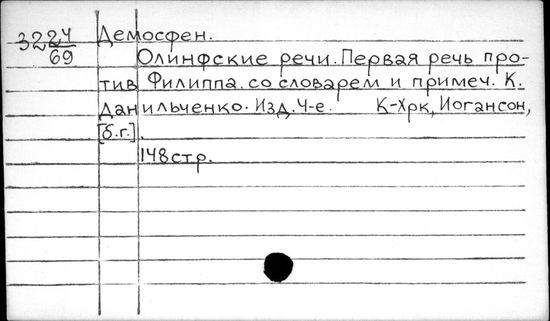 3224/69 Демосфен.
Олинфские речи. Первая речь про-
тив Филиппа. со словарем и примеч. К.
Данильченко. Изд. 4-е. К-Хрк, Иогансон,
[б.г.].
148стр.